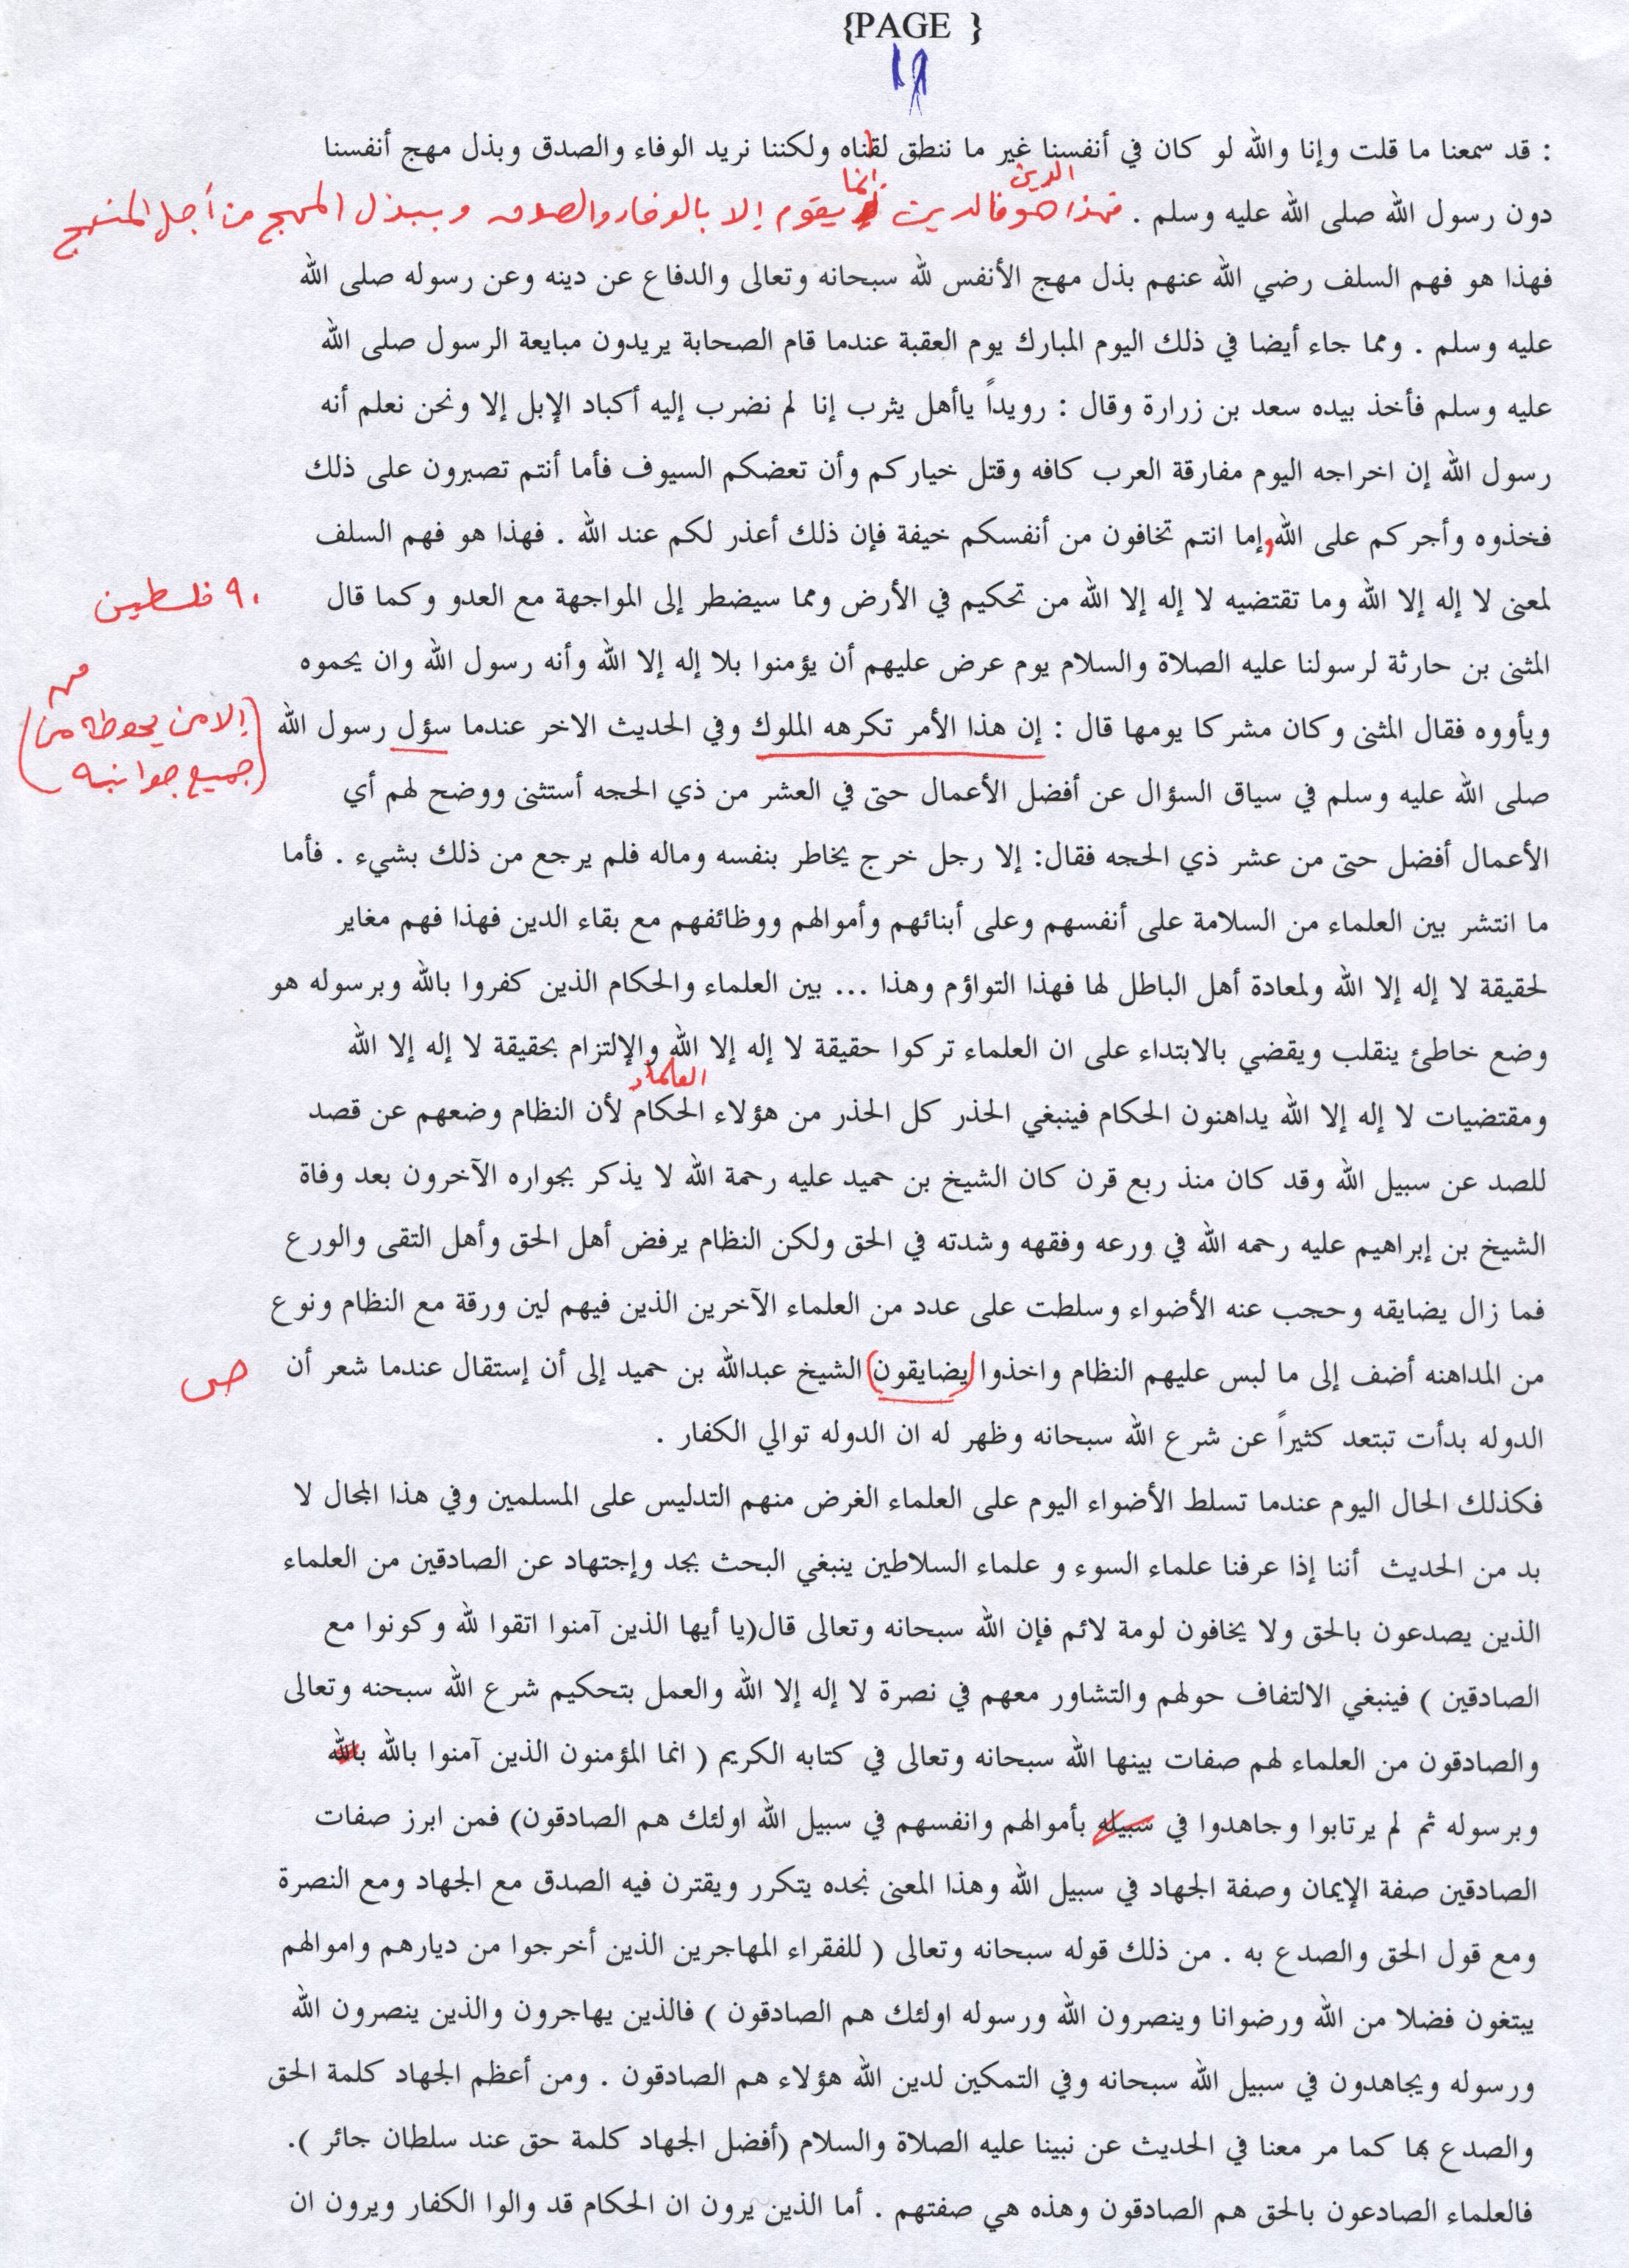 {PAGE }
١٨
: قد سمعنا ما قلت وإنا والله لو كان في أنفسنا غير ما ننطق لقلناه ولكننا نريد الوفاء والصدق وبذل مهج أنفسنا
الدين إنما
دون رسول الله صلى الله عليه وسلم . فهذا هو فالدين يقوم إلا بالوفاء والصدق وببذل المهج من أجل المنهج
فهذا هو فهم السلف رضي الله عنهم بذل مهج الأنفس لله سبحانه وتعالى والدفاع عن دينه وعن رسوله صلى الله
عليه وسلم . ومما جاء أيضا في ذلك اليوم المبارك يوم العقبة عندما قام الصحابة يريدون مبايعة الرسول صلى الله
عليه وسلم فأخذ بيده سعد بن زرارة وقال : رويداً ياأهل يثرب إنا لم نضرب إليه أكباد الإبل إلا ونحن نعلم أنه
رسول الله إن اخراجه اليوم مفارقة العرب كافه وقتل خياركم وأن تعضكم السيوف فأما أنتم تصبرون على ذلك
فخذوه وأجركم على الله وإما انتم تخافون من أنفسكم خيفة فإن ذلك أعذر لكم عند الله . فهذا هو فهم السلف
لمعنى لا إله إلا الله وما تقتضيه لا إله إلا الله من تحكيم في الأرض ومما سيضطر إلى المواجهة مع العدو وكما قال
٩٠ فلسطين
المثنى بن حارثة لرسولنا عليه الصلاة والسلام يوم عرض عليهم أن يؤمنوا بلا إله إلا الله وأنه رسول الله وان يحموه
ويأووه فقال المثنى وكان مشركا يومها قال : إن هذا الأمر تكرهه الملوك وفي الحديث الاخر عندما سؤل رسول الله
(إلا من يحوطه من
جميع جوانبه)
صلى الله عليه وسلم في سياق السؤال عن أفضل الأعمال حتى في العشر من ذي الحجه أستثنى ووضح لهم أي
الأعمال أفضل حتى من عشر ذي الحجه فقال: إلا رجل خرج يخاطر بنفسه وماله فلم يرجع من ذلك بشيء . فأما
ما انتشر بين العلماء من السلامة على أنفسهم وعلى أبنائهم وأموالهم ووظائفهم مع بقاء الدين فهذا فهم مغاير
لحقيقة لا إله إلا الله ولمعادة أهل الباطل لها فهذا التواؤم وهذا ... بين العلماء والحكام الذين كفروا بالله وبرسوله هو
وضع خاطئ ينقلب ويقضي بالابتداء على ان العلماء تركوا حقيقة لا إله إلا الله والإلتزام بحقيقة لا إله إلا الله
العلماء
ومقتضيات لا إله إلا الله يداهنون الحكام فينبغي الحذر كل الحذر من هؤلاء الحكام لأن النظام وضعهم عن قصد
للصد عن سبيل الله وقد كان منذ ربع قرن كان الشيخ بن حميد عليه رحمة الله لا يذكر بجواره الآخرون بعد وفاة
الشيخ بن إبراهيم عليه رحمه الله في ورعه وفقهه وشدته في الحق ولكن النظام يرفض أهل الحق وأهل التقى والورع
فما زال يضايقه وحجب عنه الأضواء وسلطت على عدد من العلماء الآخرين الذين فيهم لين ورقة مع النظام ونوع
من المداهنه أضف إلى ما لبس عليهم النظام واخذوا (يضايقون) الشيخ عبدالله بن حميد إلى أن إستقال عندما شعر أن
الدوله بدأت تبتعد كثيراً عن شرع الله سبحانه وظهر له ان الدوله توالي الكفار .
فكذلك الحال اليوم عندما تسلط الأضواء اليوم على العلماء الغرض منهم التدليس على المسلمين وفي هذا المجال لا
بد من الحديث أننا إذا عرفنا علماء السوء و علماء السلاطين ينبغي البحث بجد وإجتهاد عن الصادقين من العلماء
الذين يصدعون بالحق ولا يخافون لومة لائم فإن الله سبحانه وتعالى قال(يا أيها الذين آمنوا اتقوا لله وكونوا مع
الصادقين ) فينبغي الالتفاف حولهم والتشاور معهم في نصرة لا إله إلا الله والعمل بتحكيم شرع الله سبحنه وتعالى
والصادقون من العلماء لهم صفات بينها الله سبحانه وتعالى في كتابه الكريم ( انما المؤمنون الذين آمنوا بالله بالله
وبرسوله ثم لم يرتابوا وجاهدوا في سبيله بأموالهم وانفسهم في سبيل الله اولئك هم الصادقون) فمن ابرز صفات
الصادقين صفة الإيمان وصفة الجهاد في سبيل الله وهذا المعنى نجده يتكرر ويقترن فيه الصدق مع الجهاد ومع النصرة
ومع قول الحق والصدع به . من ذلك قوله سبحانه وتعالى ( للفقراء المهاجرين الذين أخرجوا من ديارهم واموالهم
يبتغون فضلا من الله ورضوانا وينصرون الله ورسوله اولئك هم الصادقون ) فالذين يهاجرون والذين ينصرون الله
ورسوله ويجاهدون في سبيل الله سبحانه وفي التمكين لدين الله هؤلاء هم الصادقون . ومن أعظم الجهاد كلمة الحق
والصدع بها كما مر معنا في الحديث عن نبينا عليه الصلاة والسلام (أفضل الجهاد كلمة حق عند سلطان جائر ).
فالعلماء الصادعون بالحق هم الصادقون وهذه هي صفتهم . أما الذين يرون ان الحكام قد والوا الكفار ويرون ان